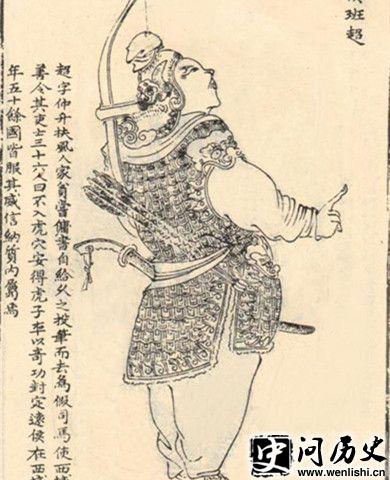 班超
超字仲升扶風人家貧嘗傭書自給久之投筆而去為假司馬使西域
善令其吏士三十六人曰不入虎穴安得虎子卒以奇功封定遠侯在西域
年五十餘國皆服其威信納質內屬焉
史问历史
www.wenlishi.cn